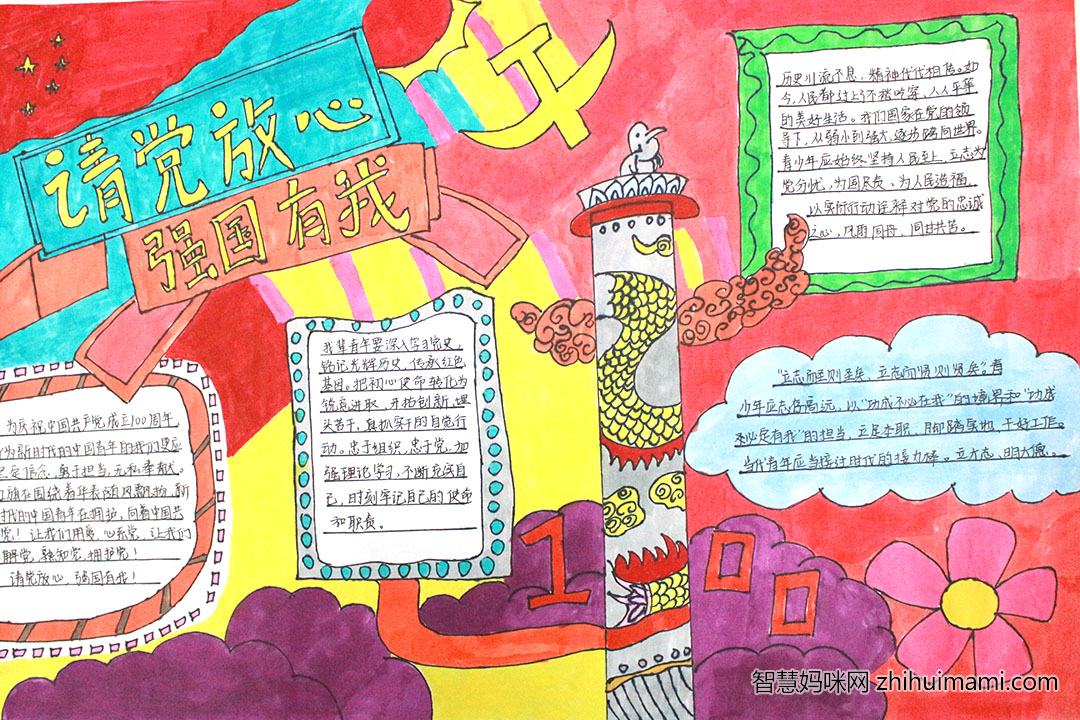 请党放心
强国有我
历史川流不息，精神代代相传。如
今，人民都过上了不愁吃穿，人人平等
的美好生活。我们国家在党的领
导下，从弱小到强大，逐步踏向世界。
青少年应始终坚持人民至上，立志为
党分忧、为国尽责、为人民造福，
以实际行动诠释对党的忠诚
之心，风雨同舟，同甘共苦。
我辈青年要深入学习党史，
铭记光辉历史，传承红色
基因。把初心使命转化为
锐意进取、开拓创新、埋
头苦干、真抓实干的自觉行
动。忠于组织，忠于党，加
强理论学习，不断充实自
己，时刻牢记自己的使命
和职责。
"立志而圣则圣矣，立志而贤则贤矣"青
少年应志存高远，以"功成不必在我"的境界和"功成
必定有我"的担当，立足本职、脚踏实地、干好工作。
当代青年应当接过时代的接力棒。立大志、明大德。
为庆祝中国共产党成立100周年，
为新时代的中国青年的我们更应
坚定信念，勇于担当，无私奉献。
旗在围绕着年表随风飘扬，新
时代的中国青年在拥护，向着中国共
党！让我们用爱，心系党，让我们
解党，熟知党，拥护党！
请党放心，强国有我！
100
智慧妈咪网 zhihuimami.com